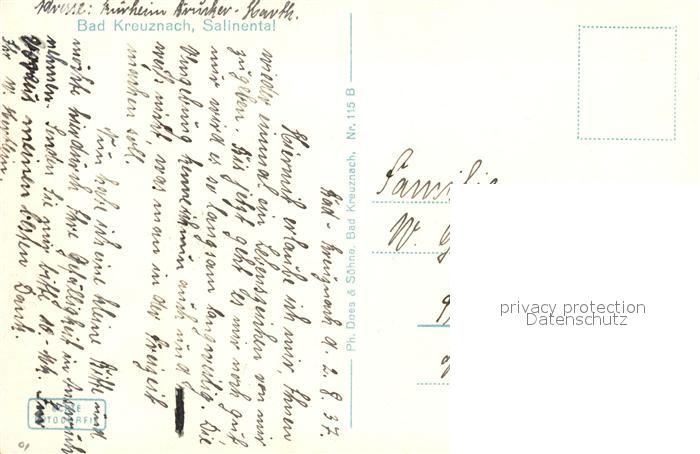 Adresse: Kurheim Drucker-Harth.
Bad Kreuznach, Salinental
Bad-Kreuznach d. 2.8.37.
Hiermit erlaube ich mir, Ihnen
wieder einmal ein Lebenszeichen von mir
zu geben. Bis jetzt geht es mir noch gut
nur wird es so langsam langweilig. Die
Umgebung kennt man auch und
weiß nicht was man in der Freizeit
machen soll.
Nun habe ich eine kleine Bitte und
möchte hierdurch Ihre Gefälligkeit in Anspruch
nehmen. Senden Sie mir bitte 10.- Mk.
Voraus meinen besten Dank.
Ihr W.
Ph. Does & Söhne, Bad Kreuznach, Nr. 115 B
Familie
W. G
privacy protection
Datenschutz